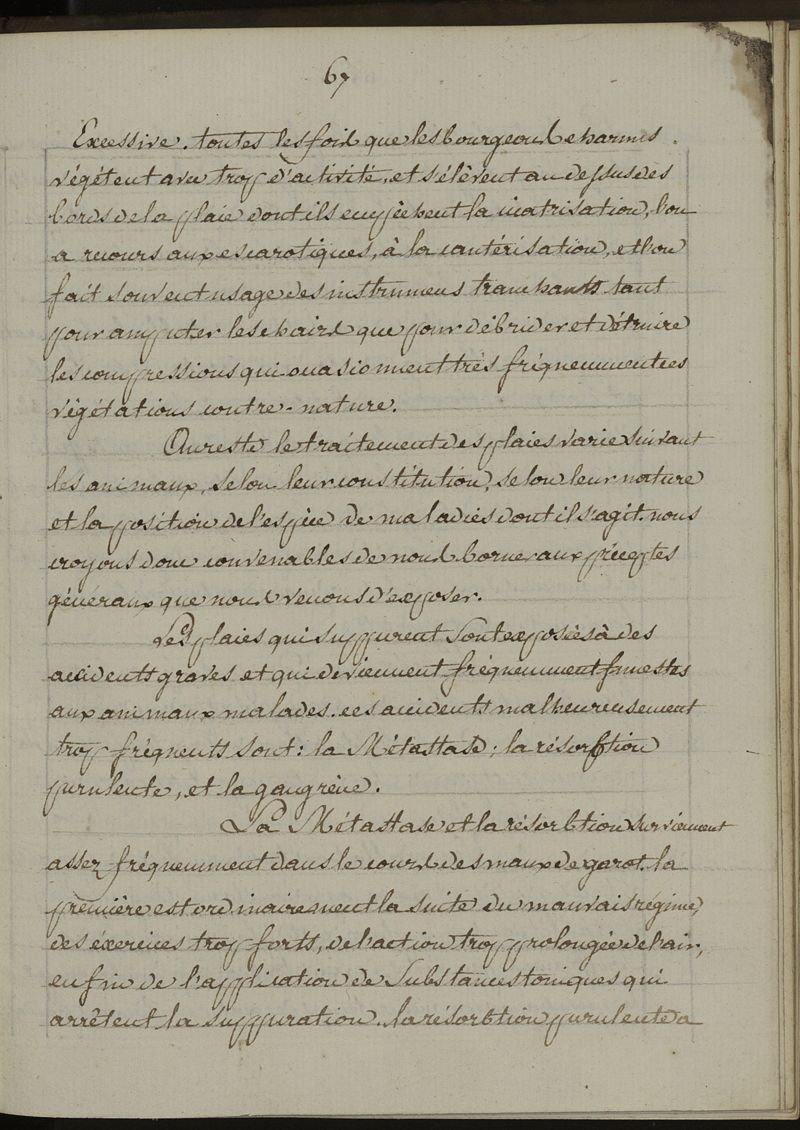 67
Excessive. toutes les fois que les bourgeons charnus
végétent avec trop d'activité, et s'élèvent au dessus des
bords de la plaie dont ils empêchent la cicatrisation, l'on
a recours aux escarotiques, à la cautérisation, et l'on
fait souvent usage des instrumens tranchants tant
pour amputer les chairs que pour débrider et détruire
les compressions qui occasionnent très fréquemment ces
végétations contre-nature.
Au reste le traitement des plaies varie suivant
les animaux, selon leur constitution, selon leur nature
et la position de l'espèce de maladies dont il s'agit. nous
croyons donc convenables de nous borner aux préceptes
généraux que nous venons d'exposer.
Les plaies qui suppurent sont exposées à des
accidents graves et qui deviennent fréquemment funestes
aux animaux malades. ces accidents malheureusement
trop fréquents sont: la Métastase; la résorbtion
purulente, et la gangrène.
La Métastase et la résorbtion surviennent
assez fréquemment dans le cours des maux de garot. la
première est ordinairement la suite du mauvais régime,
des éxercices trop forts, de l'action trop prolongée de l'air,
enfin de l'application de substances toniques qui
arrêtent la suppuration. la résorbtion purulente a